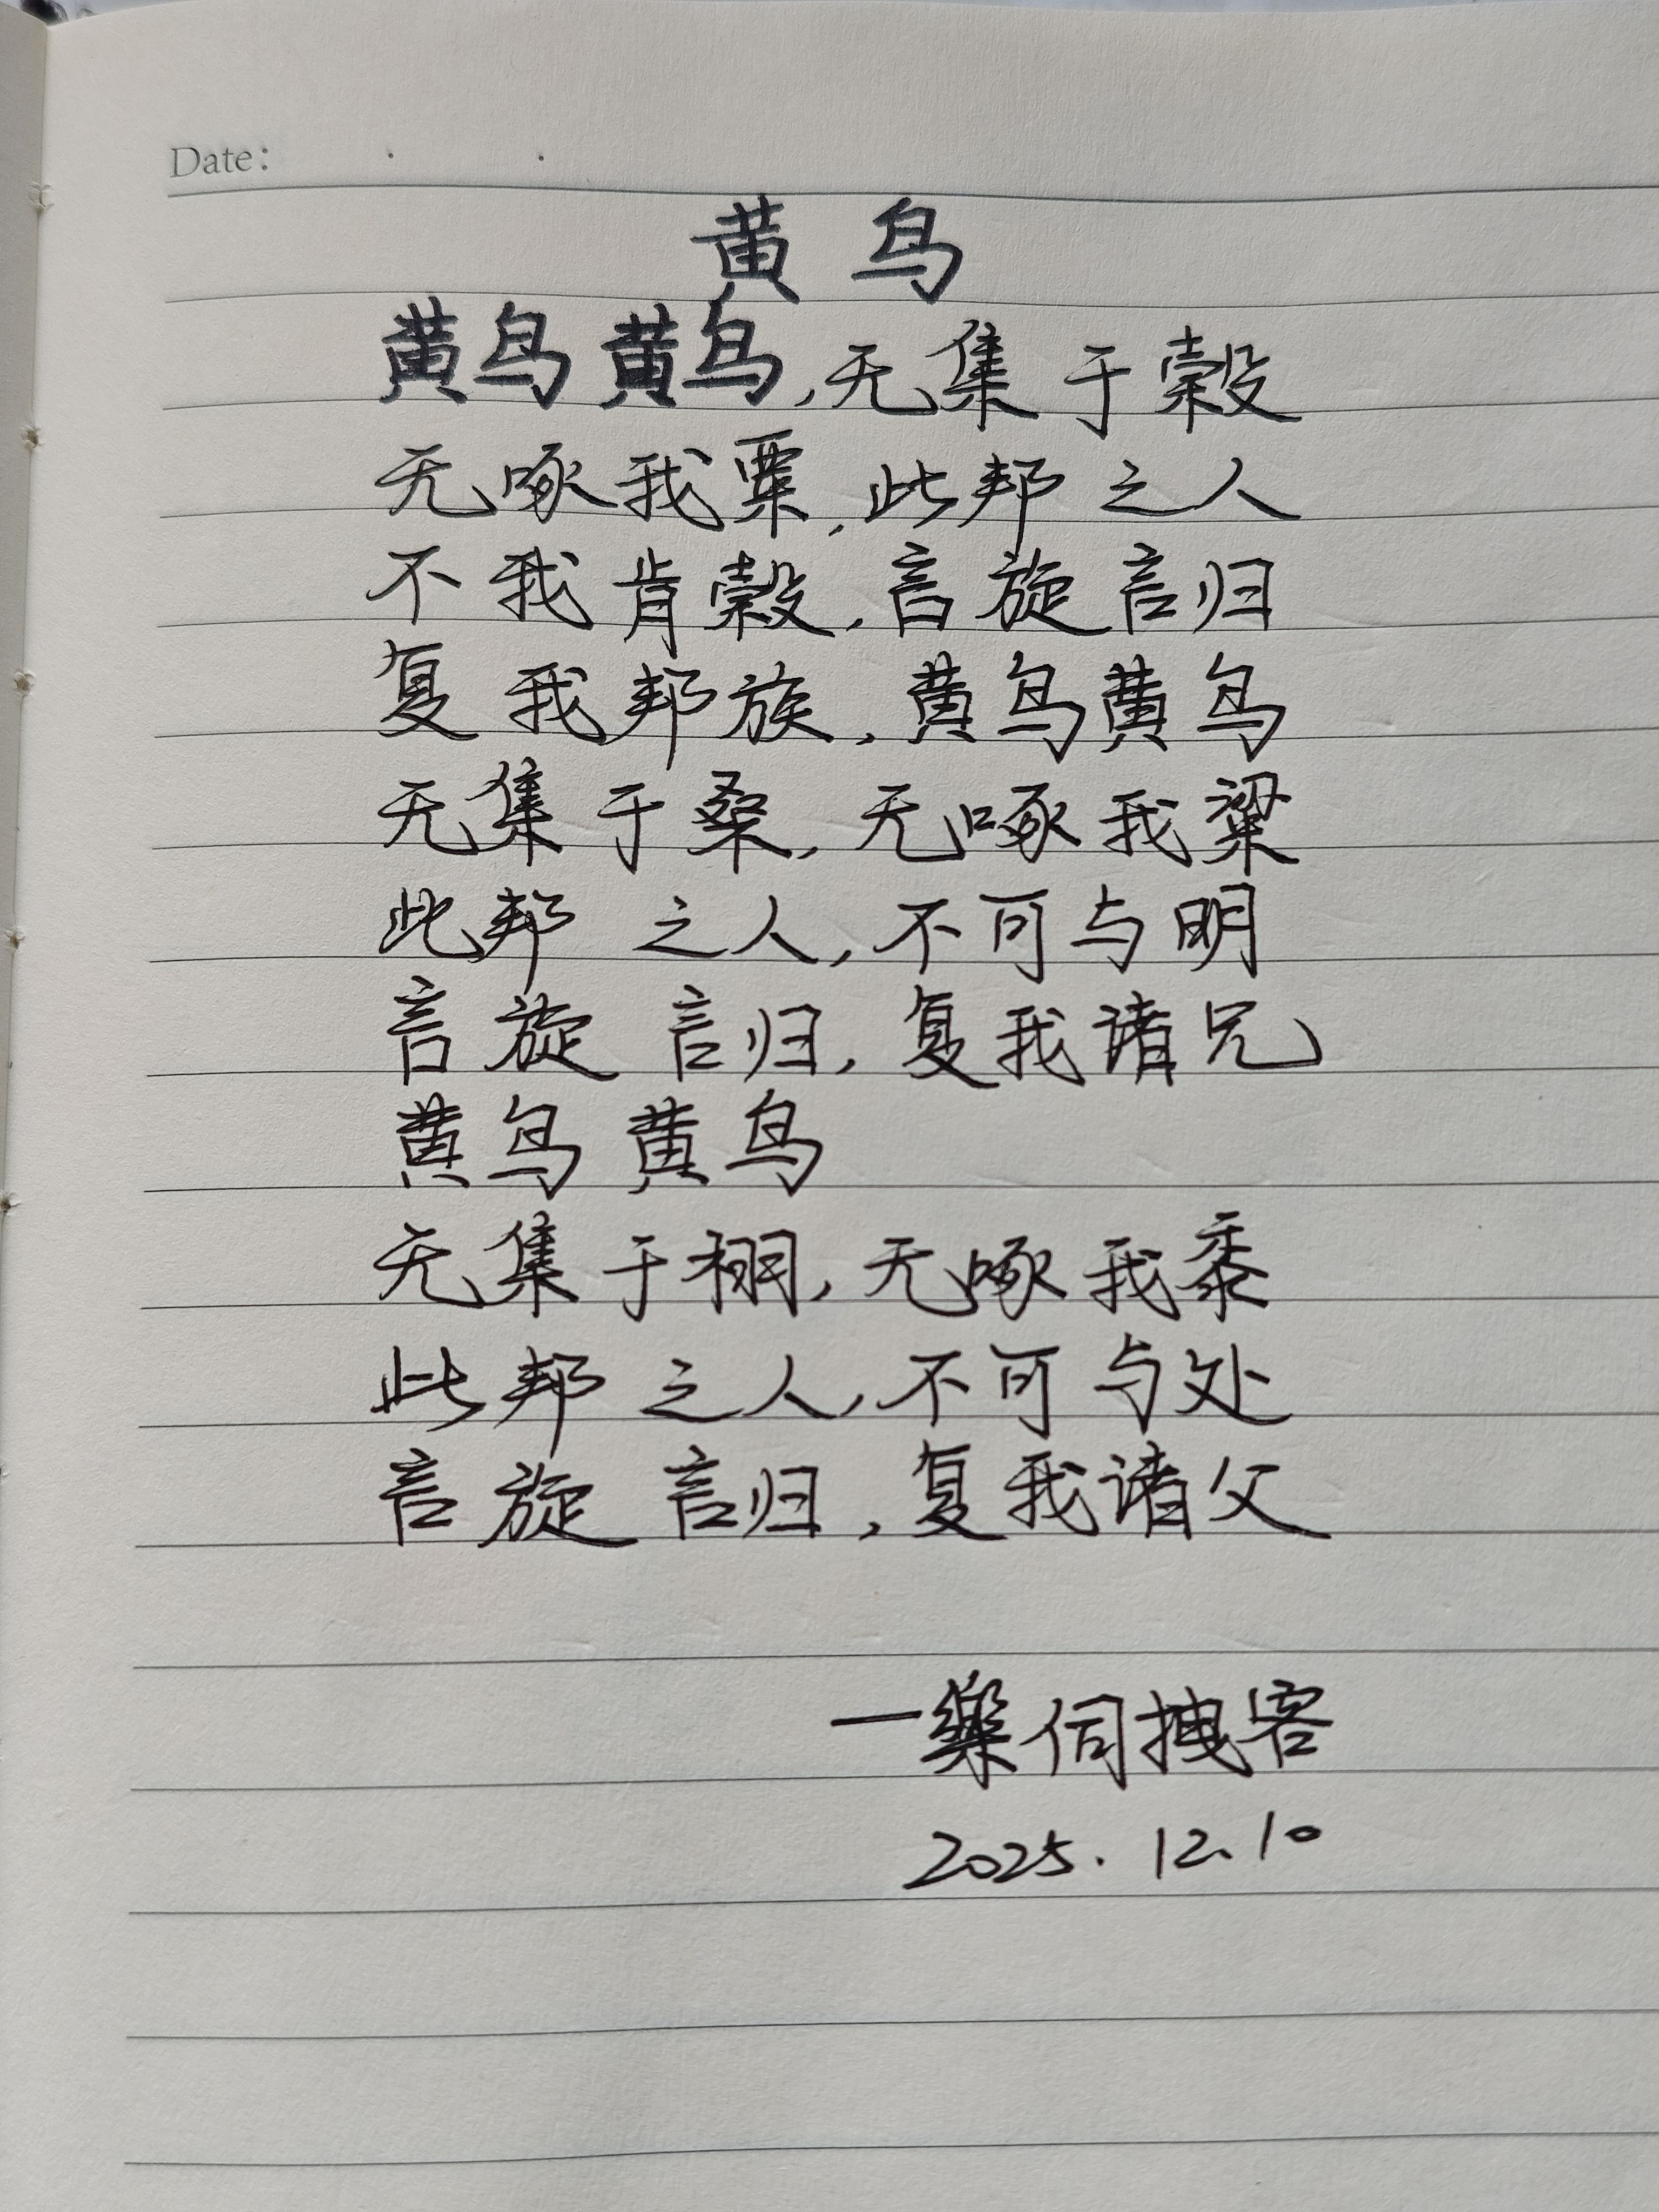 Date:
黄鸟
黄鸟黄鸟,无集于榖
无啄我粟,此邦之人
不我肯榖,言旋言归
复我邦族,黄鸟黄鸟
无集于桑,无啄我粱
此邦之人,不可与明
言旋言归,复我诸兄
黄鸟黄鸟
无集于栩,无啄我黍
此邦之人,不可与处
言旋言归,复我诸父
一樂伺拽客
2025.12.10